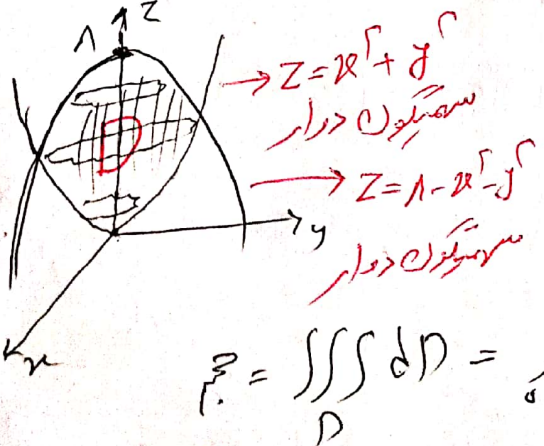 z
۸
→ z = x² + y²
سهمیگون دوار
D
→ z = ۸ - x² - y²
سهمیگون دوار
y
x
حجم = ∭ dD =
D